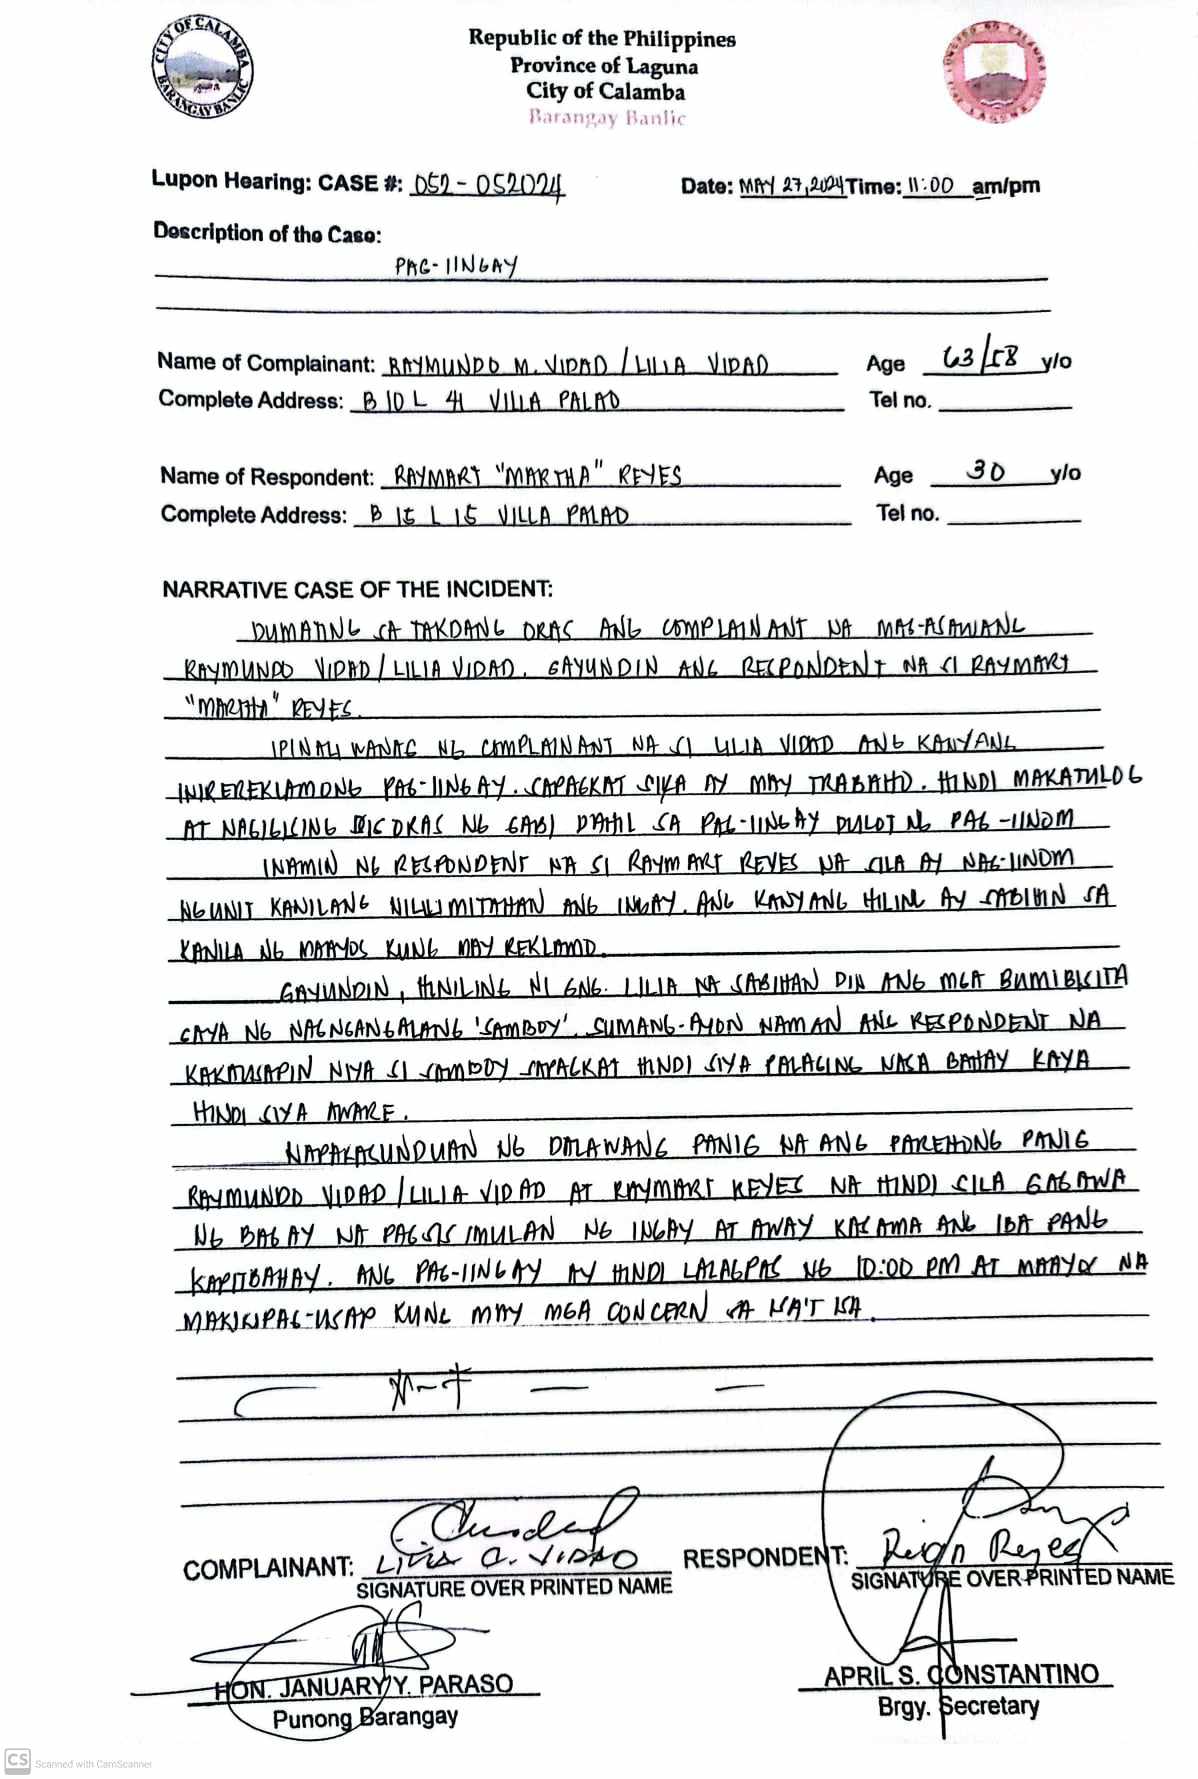 CITY OF CALAMBA
BARANGAY BANLIC
Republic of the Philippines
Province of Laguna
City of Calamba
Barangay Banlic
Lupon Hearing: CASE #: 052 - 052024 Date: MAY 27, 2024 Time: 11:00 am/pm
Description of the Case:
PAG-IINGAY
Name of Complainant: RAYMUNDO M. VIDAD / LILIA VIDAD Age 63/58 y/o
Complete Address: B 10 L 41 VILLA PALAD Tel no.
Name of Respondent: RAYMART "MARTHA" REYES Age 30 y/o
Complete Address: B 15 L 15 VILLA PALAD Tel no.
NARRATIVE CASE OF THE INCIDENT:
DUMATING SA TAKDANG ORAS ANG COMPLAINANT NA MAG-ASAWANG
RAYMUNDO VIDAD / LILIA VIDAD. GAYUNDIN ANG RESPONDENT NA SI RAYMART
"MARTHA" REYES.
IPINALIWANAG NG COMPLAINANT NA SI LILIA VIDAD ANG KANYANG
INIREREKLAMONG PAG-IINGAY. SAPAGKAT SIYA AY MAY TRABAHO. HINDI MAKATULOG
AT NAGIGISING DIS ORAS NG GABI DAHIL SA PAG-IINGAY DULOT NG PAG-IINOM
INAMIN NG RESPONDENT NA SI RAYMART REYES NA SILA AY NAG-IINOM
NGUNIT KANILANG NILILIMITAHAN ANG INGAY. ANG KANYANG HILING AY SABIHIN SA
KANILA NG MAAYOS KUNG MAY REKLAMO.
GAYUNDIN, HINILING NI GNG. LILIA NA SABIHAN DIN ANG MGA BUMIBISITA
GAYA NG NAGNGANGALANG 'SAMBOY'. SUMANG-AYON NAMAN ANG RESPONDENT NA
KAKAUSAPIN NIYA SI SAMBOY SAPAGKAT HINDI SIYA PALAGING NASA BAHAY KAYA
HINDI SIYA AWARE.
NAPAKASUNDUAN NG DALAWANG PANIG NA ANG PAREHONG PANIG
RAYMUNDO VIDAD / LILIA VIDAD AT RAYMART REYES NA HINDI SILA GAGAWA
NG BAGAY NA PAGSISIMULAN NG INGAY AT AWAY KASAMA ANG IBA PANG
KAPITBAHAY. ANG PAG-IINGAY AY HINDI LALAGPAS NG 10:00 PM AT MAAYOS NA
MAKIKIPAG-USAP KUNG MAY MGA CONCERN SA ISA'T ISA.
COMPLAINANT: LILIA A. VIDAD RESPONDENT: Reign Reyes
SIGNATURE OVER PRINTED NAME SIGNATURE OVER PRINTED NAME
HON. JANUARY Y. PARASO APRIL S. CONSTANTINO
Punong Barangay Brgy. Secretary
CS Scanned with CamScanner